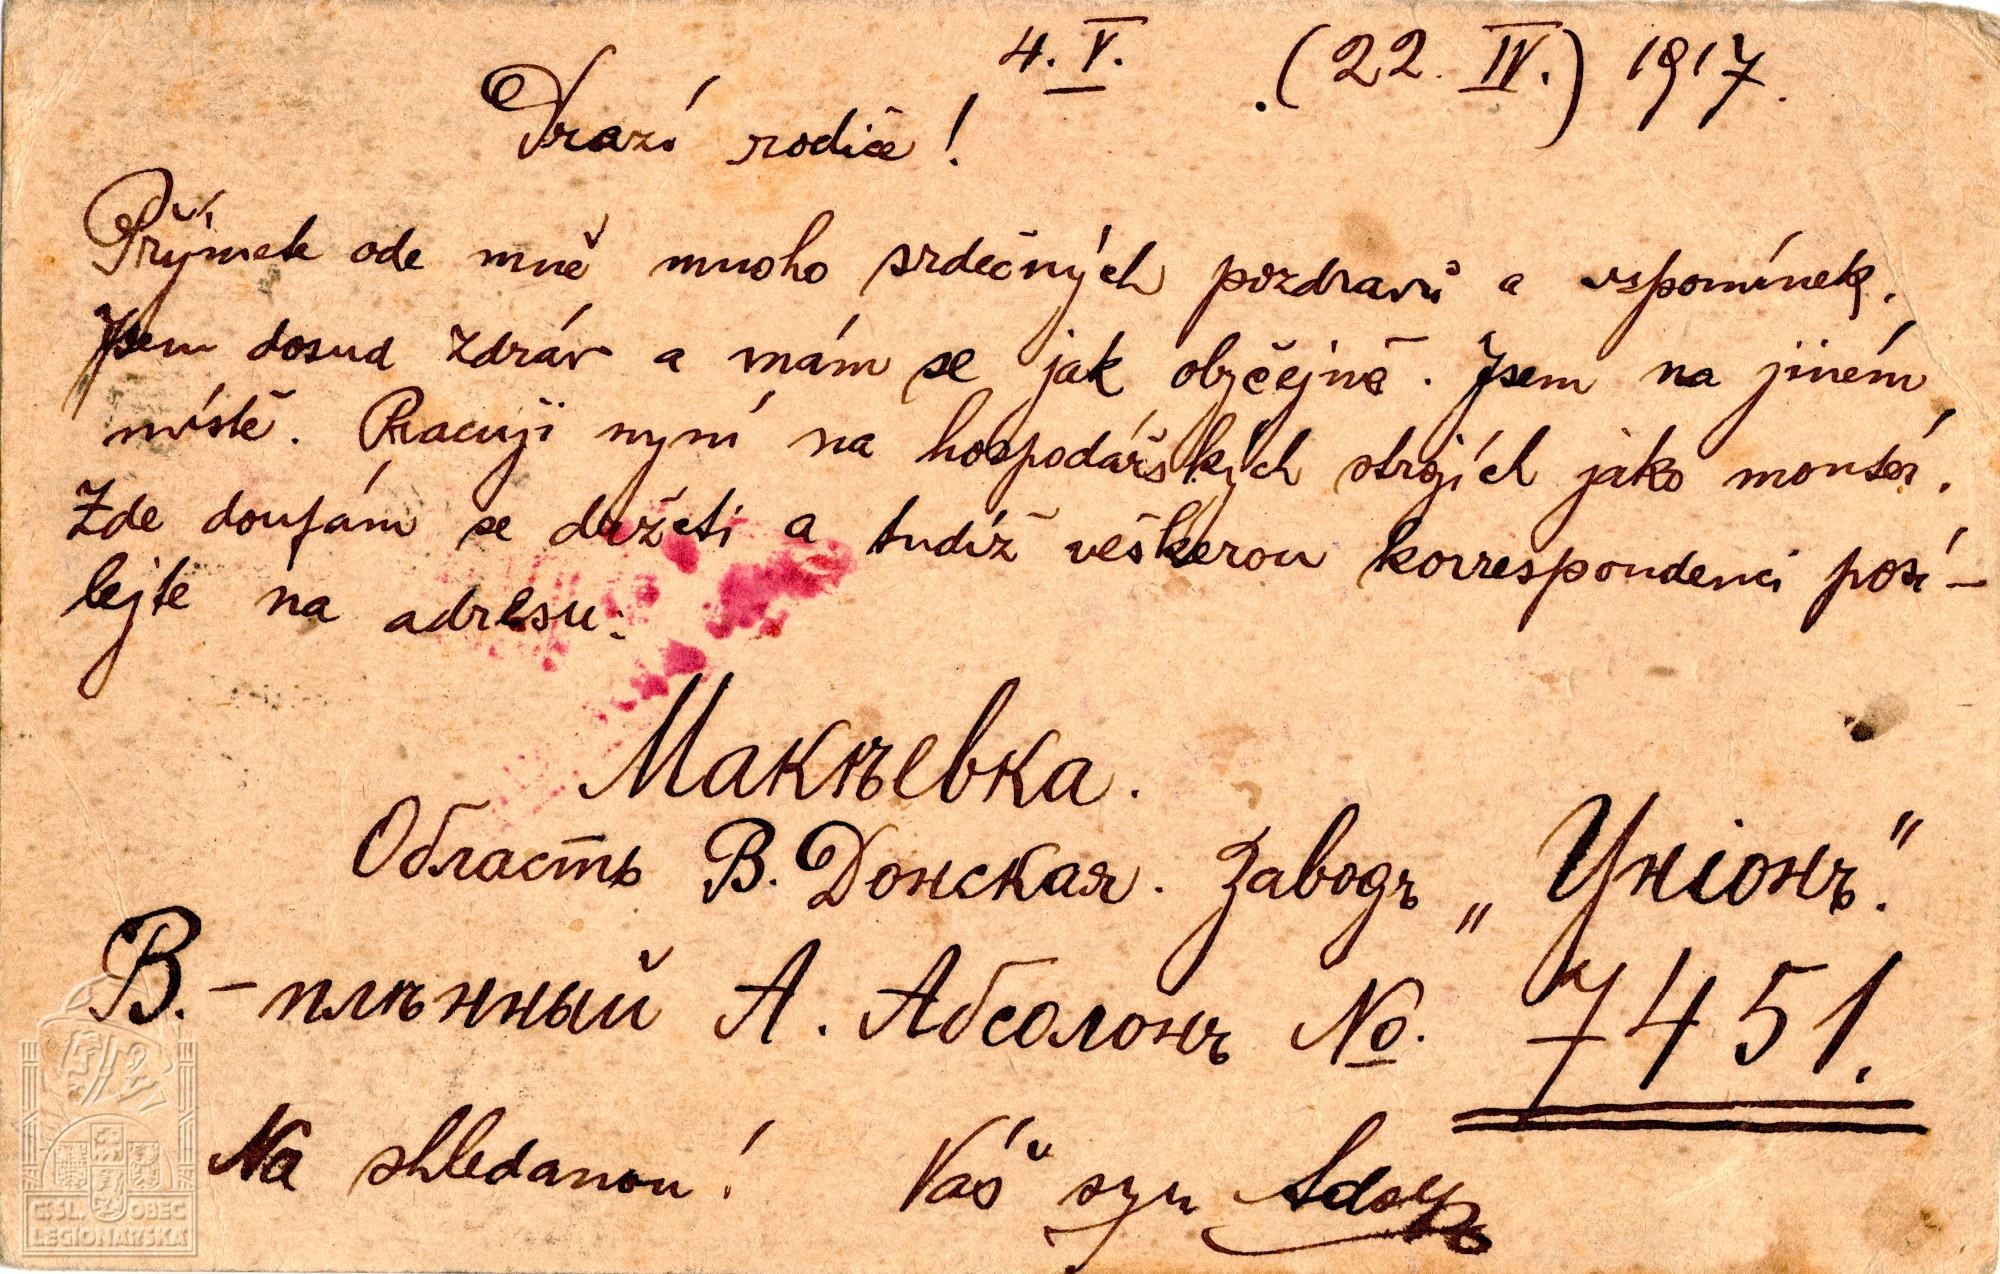 4. V. (22. IV.) 1917.
Drazí rodiče!
Přijmete ode mně mnoho srdečných pozdravů a vzpomínek.
Jsem dosud zdráv a mám se jak obyčejně. Jsem na jiném
místě. Pracuji nyní na hospodářských strojích jako montér.
Zde doufám se držeti a tudíž veškerou korrespondenci posí-
lejte na adresu:
Макѣевка.
Область В. Донская. Заводъ „Уніонъ."
В.-плѣнный А. Абсолонъ №. 7451.
Na shledanou! Váš syn Adolf
ČSL. OBEC
LEGIONÁŘSKÁ